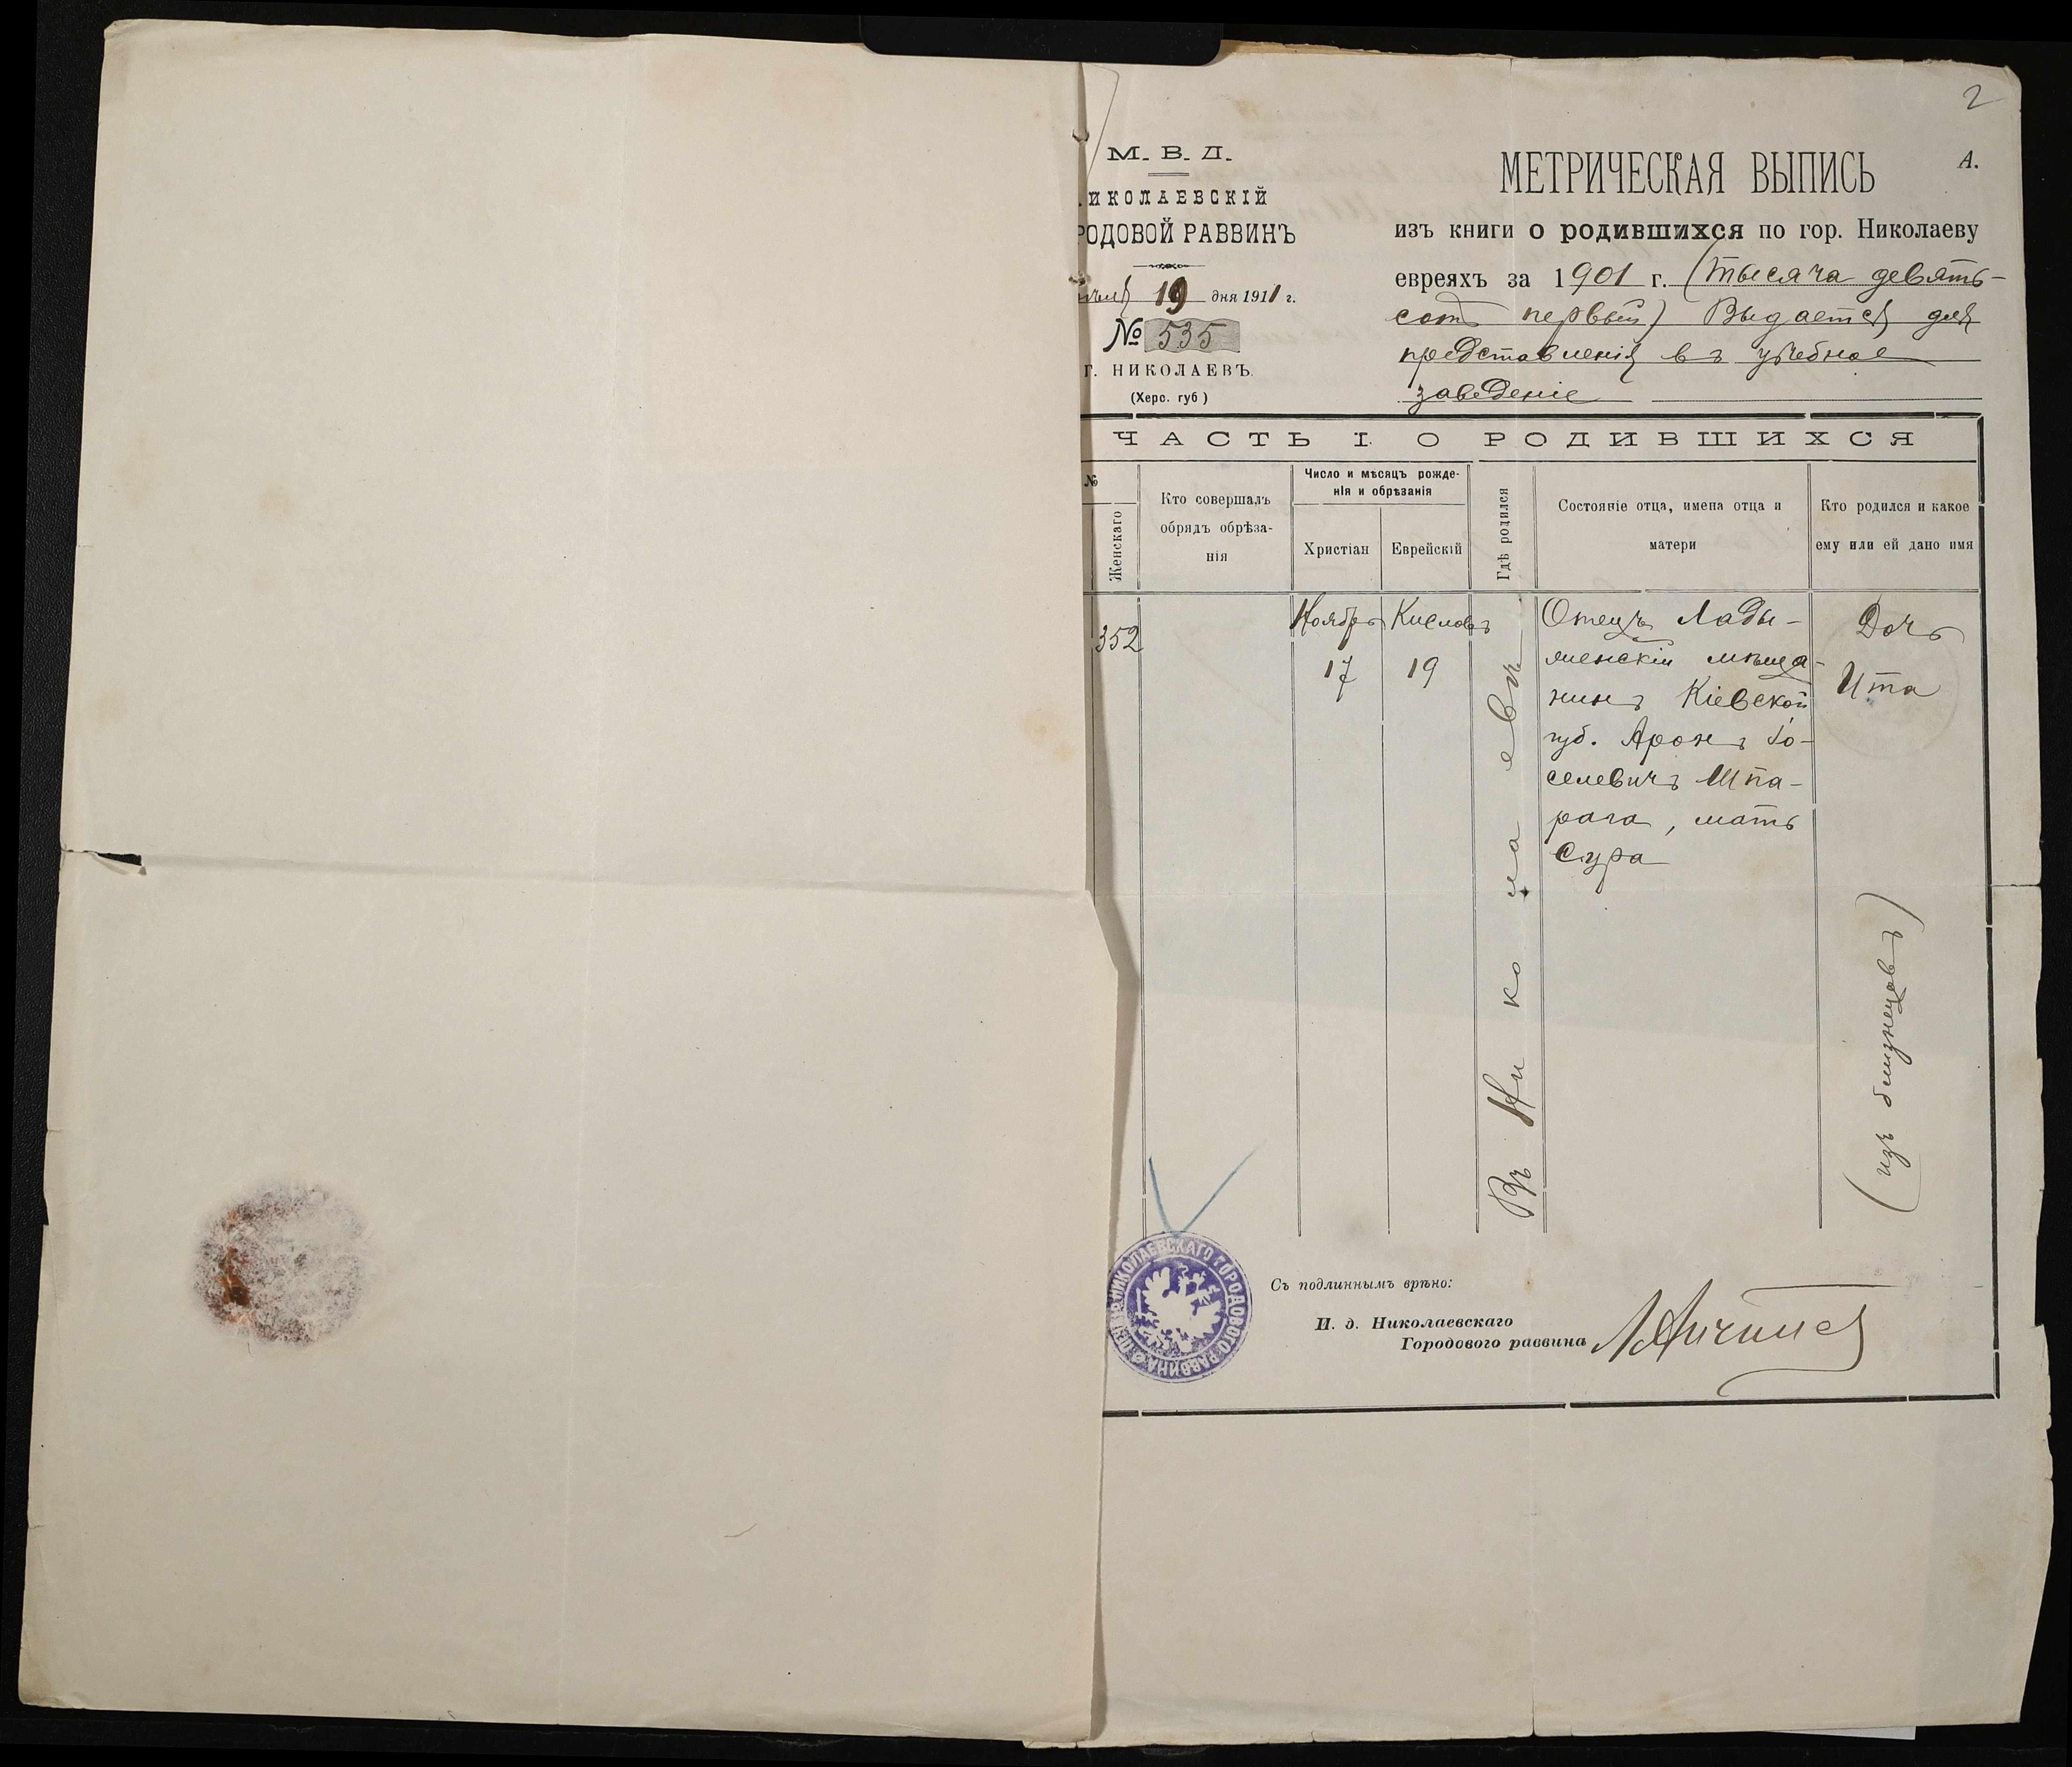 2
М. В. Д.
ИКОЛАЕВСКІЙ
РОДОВОЙ РАВВИНЪ
19 дня 1911 г.
№ 535
Г. НИКОЛАЕВЪ.
(Херс. губ)
А.
МЕТРИЧЕСКАЯ ВЫПИСЬ
изъ книги о родившихся по гор. Николаеву
евреяхъ за 1901 г. (тысяча девять-
сотъ первый) Выдается для
представленія въ учебное
заведеніе
ЧАСТЬ I. О РОДИВШИХСЯ
№
Женскаго
Кто совершалъ
обрядъ обрѣза-
нія
Число и мѣсяцъ рожде-
нія и обрѣзанія
Христіан
Еврейскій
Гдѣ родился
Состояніе отца, имена отца и
матери
Кто родился и какое
ему или ей дано имя
352
Ноябрь
17
Кислевъ
19
Въ Николаевѣ
Отецъ Лады-
женскій мѣща-
нинъ Кіевской
губ. Аронъ Іо-
селевичъ Шпа-
рага, мать
Сура
Дочь
Ита
(изъ близнецовъ)
ПЕЧ. НИКОЛАЕВСКАГО ГОРОДОВОГО РАВВИНА
Съ подлиннымъ врѣно:
И. д. Николаевскаго
Городового раввина